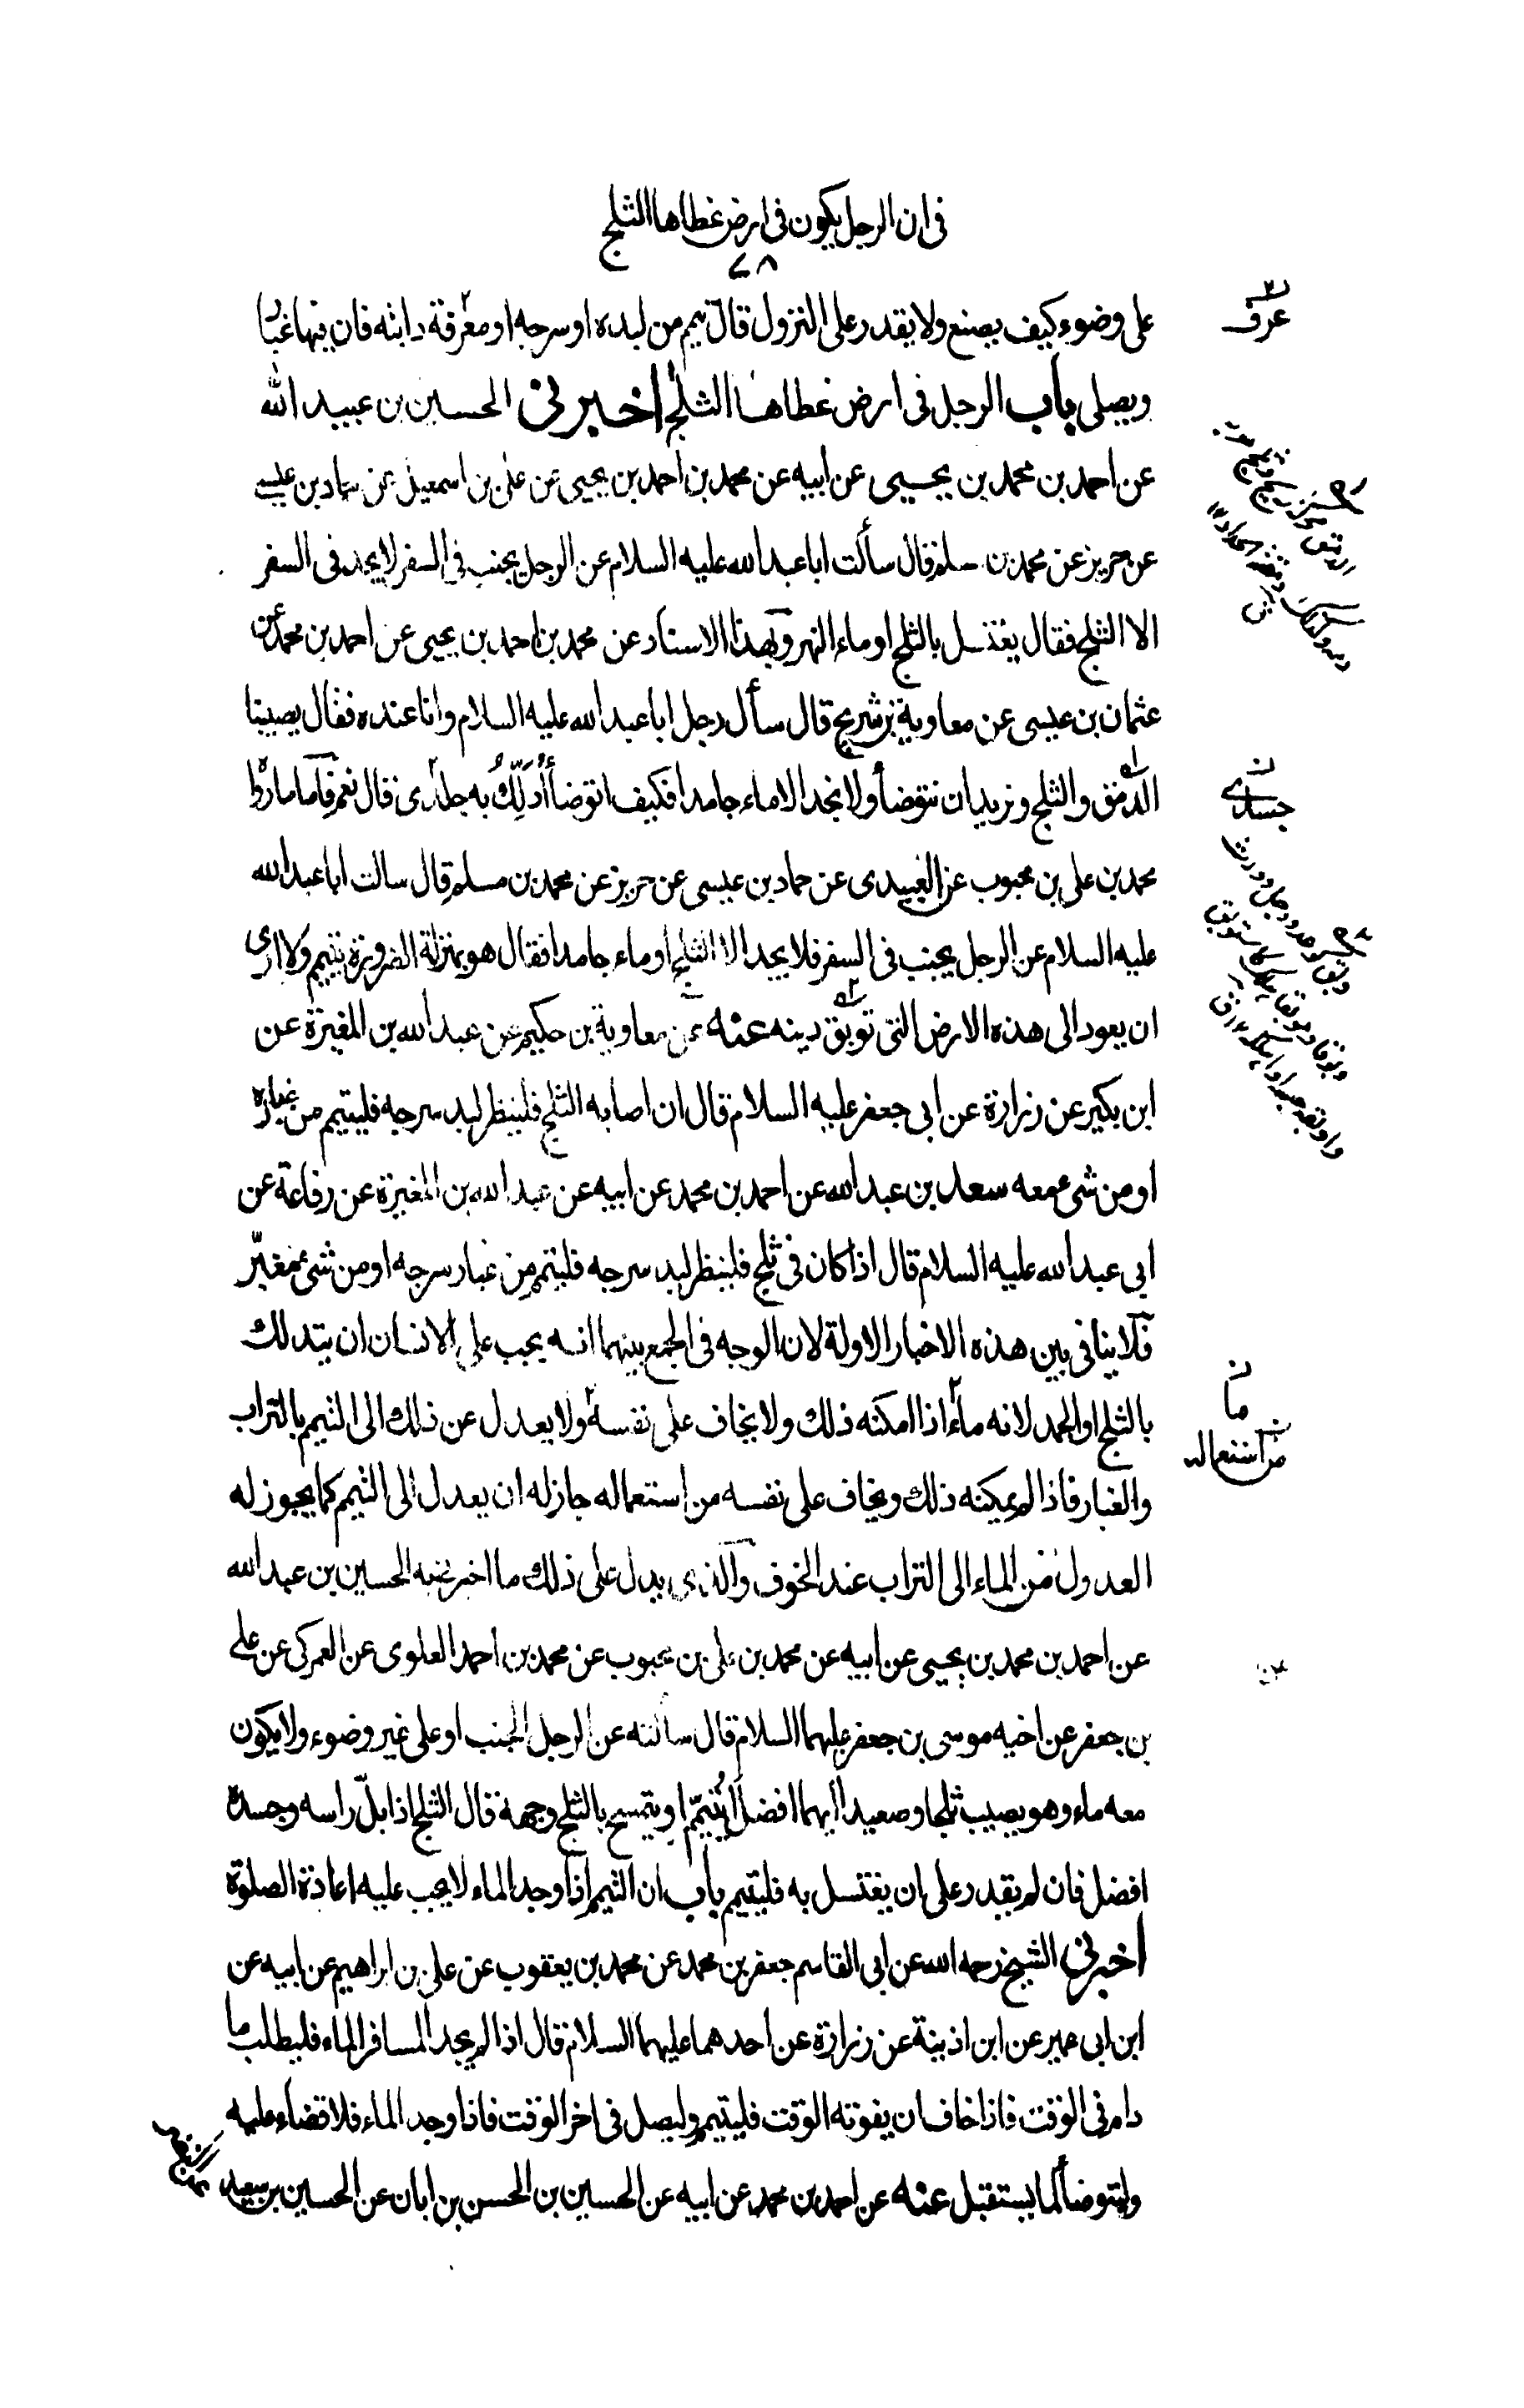 في ان الرجل يكون في ارض غطاها الثلج
٧٨
على وضوء كيف يصنع ولا يقدر على النزول قال تيمم من لبده او سرجه او معرفة دابته فان فيها غبارا
ويصلى باب الرجل في ارض غطاها الثلج اخبرنى الحسين بن عبيد الله
عن احمد بن محمد بن يحيى عن ابيه عن محمد بن احمد بن يحيى عن على بن اسمعيل عن حماد بن عيسى
عن حريز عن محمد بن مسلم قال سألت ابا عبد الله عليه السلام عن الرجل يجنب في السفر لا يجد في السفر
الا الثلج فقال يغتسل بالثلج او ماء النهر وبهذا الاسناد عن محمد بن احمد بن يحيى عن احمد بن محمد عن
عثمان بن عيسى عن معاوية بن شريح قال سأل رجل ابا عبد الله عليه السلام وانا عنده فقال يصيبنا
الدمق والثلج ونريد ان نتوضأ ولا نجد الا ماء جامدا فكيف اتوضأ أدلك به جلدى قال نعم فاما ما رواه
محمد بن على بن محبوب عن العبيدى عن حماد بن عيسى عن حريز عن محمد بن مسلم قال سالت ابا عبد الله
عليه السلام عن الرجل يجنب في السفر فلا يجد الا الثلج أو ماء جامدا فقال هو بمنزلة الضرورة يتيمم ولا ارى
ان يعود الى هذه الارض التى توبق دينه عنه عن معاوية بن حكيم عن عبد الله بن المغيرة عن
ابن بكير عن زرارة عن ابى جعفر عليه السلام قال ان اصابه الثلج فلينظر لبد سرجه فليتيمم من غباره
او من شىء معه سعد بن عبد الله عن احمد بن محمد عن ابيه عن عبد الله بن المغيرة عن رفاعة عن
ابى عبد الله عليه السلام قال اذا كان في ثلج فلينظر لبد سرجه فليتمم من غبار سرجه او من شىء مغبر
فلا ينافى بين هذه الاخبار الاولة لان الوجه في الجمع بينهما انه يجب على الانسان ان يتدلك
بالثلج او الجمد لانه ماء اذا امكنه ذلك ولا يخاف على نفسه ولا يعدل عن ذلك الى التيمم بالتراب
والغبار فاذا لم يمكنه ذلك ويخاف على نفسه من استعماله جاز له ان يعدل الى التيمم كما يجوز له
العدول من الماء الى التراب عند الخوف والذى يدل على ذلك ما اخبرنى به الحسين بن عبد الله
عن احمد بن محمد بن يحيى عن ابيه عن محمد بن على بن محبوب عن محمد بن احمد العلوى عن العمركى عن على
بن جعفر عن اخيه موسى بن جعفر عليهما السلام قال سألته عن الرجل الجنب او على غير وضوء ولا يكون
معه ماء وهو يصيب ثلجا وصعيدا ايهما افضل أيتيمم او يتمسح بالثلج وجهه قال الثلج اذا بل راسه وجسده
افضل فان لم يقدر على ان يغتسل به فليتيمم باب ان التيمم اذا وجد الماء لا يجب عليه اعادة الصلوة
اخبرنى الشيخ رحمه الله عن ابى القاسم جعفر بن محمد عن محمد بن يعقوب عن على بن ابراهيم عن ابيه عن
ابن ابى عمير عن ابن اذينة عن زرارة عن احدهما عليهما السلام قال اذا لم يجد المسافر الماء فليطلب ما
دام في الوقت فاذا خاف ان يفوته الوقت فليتيمم وليصل في اخر الوقت فاذا وجد الماء فلا قضاء عليه
وليتوضأ لما يستقبل عنه عن احمد بن محمد عن ابيه عن الحسين بن الحسن بن ابان عن الحسين بن سعيد
عرف
جسدى
ما
من استعماله